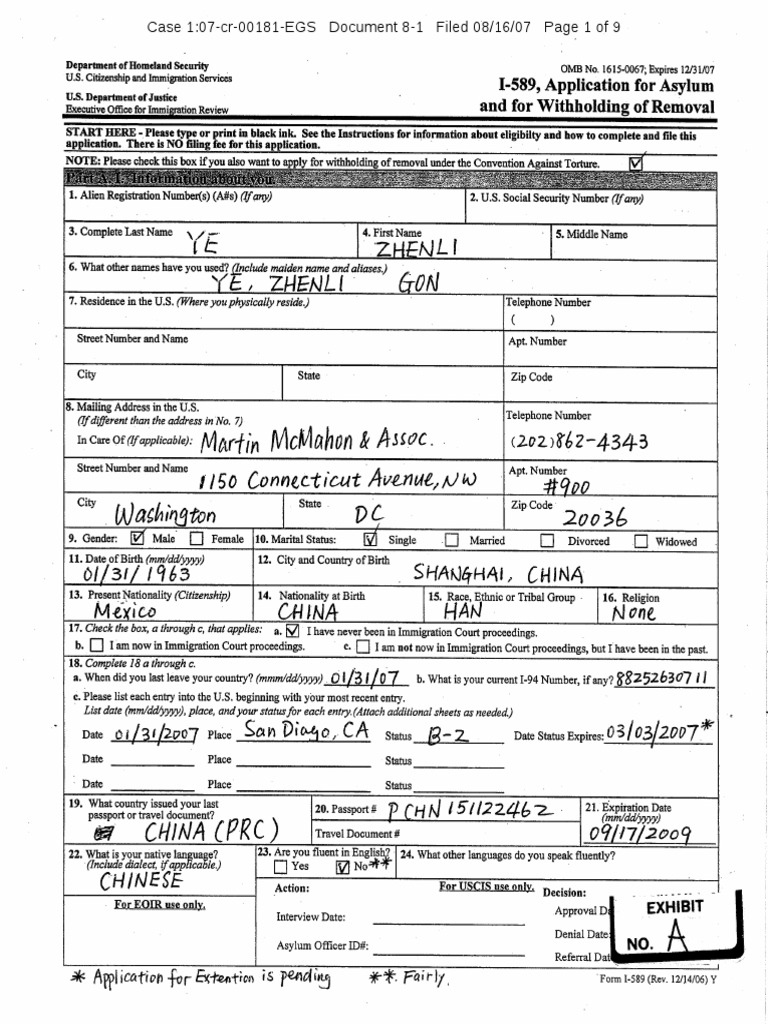 Case 1:07-cr-00181-EGS Document 8-1 Filed 08/16/07 Page 1 of 9
Department of Homeland Security
U.S. Citizenship and Immigration Services
U.S. Department of Justice
Executive Office for Immigration Review
OMB No. 1615-0067; Expires 12/31/07
I-589, Application for Asylum
and for Withholding of Removal
START HERE - Please type or print in black ink. See the Instructions for information about eligibilty and how to complete and file this
application. There is NO filing fee for this application.
NOTE: Please check this box if you also want to apply for withholding of removal under the Convention Against Torture.
Part A. I. Information about you.
1. Alien Registration Number(s) (A#s) (If any)
2. U.S. Social Security Number (If any)
3. Complete Last Name
YE
4. First Name
ZHENLI
5. Middle Name
6. What other names have you used? (Include maiden name and aliases.)
YE, ZHENLI GON
7. Residence in the U.S. (Where you physically reside.)
Telephone Number
( )
Street Number and Name
Apt. Number
City
State
Zip Code
8. Mailing Address in the U.S.
(If different than the address in No. 7)
Telephone Number
In Care Of (If applicable): Martin McMahon & Assoc.
(202)862-4343
Street Number and Name
1150 Connecticut Avenue, NW
Apt. Number
#900
City
Washington
State
DC
Zip Code
20036
9. Gender: Male Female
10. Marital Status: Single Married Divorced Widowed
11. Date of Birth (mm/dd/yyyy)
01/31/1963
12. City and Country of Birth
SHANGHAI, CHINA
13. Present Nationality (Citizenship)
México
14. Nationality at Birth
CHINA
15. Race, Ethnic or Tribal Group
HAN
16. Religion
None
17. Check the box, a through c, that applies: a. I have never been in Immigration Court proceedings.
b. I am now in Immigration Court proceedings. c. I am not now in Immigration Court proceedings, but I have been in the past.
18. Complete 18 a through c.
a. When did you last leave your country? (mmm/dd/yyyy) 01/31/07 b. What is your current I-94 Number, if any? 88252630711
c. Please list each entry into the U.S. beginning with your most recent entry.
List date (mm/dd/yyyy), place, and your status for each entry.(Attach additional sheets as needed.)
Date 01/31/2007 Place San Diago, CA Status B-2 Date Status Expires: 03/03/2007*
Date Place Status
Date Place Status
19. What country issued your last
passport or travel document?
CHINA (PRC)
20. Passport # P CHN 151122462
Travel Document #
21. Expiration Date
(mm/dd/yyyy)
09/17/2009
22. What is your native language?
(Include dialect, if applicable.)
CHINESE
23. Are you fluent in English?
Yes No**
24. What other languages do you speak fluently?
For EOIR use only.
For USCIS use only.
Action:
Interview Date:
Asylum Officer ID#:
Decision:
Approval Da
Denial Date:
Referral Dat
EXHIBIT
NO. A
* Application for Extention is pending **. Fairly.
Form I-589 (Rev. 12/14/06) Y